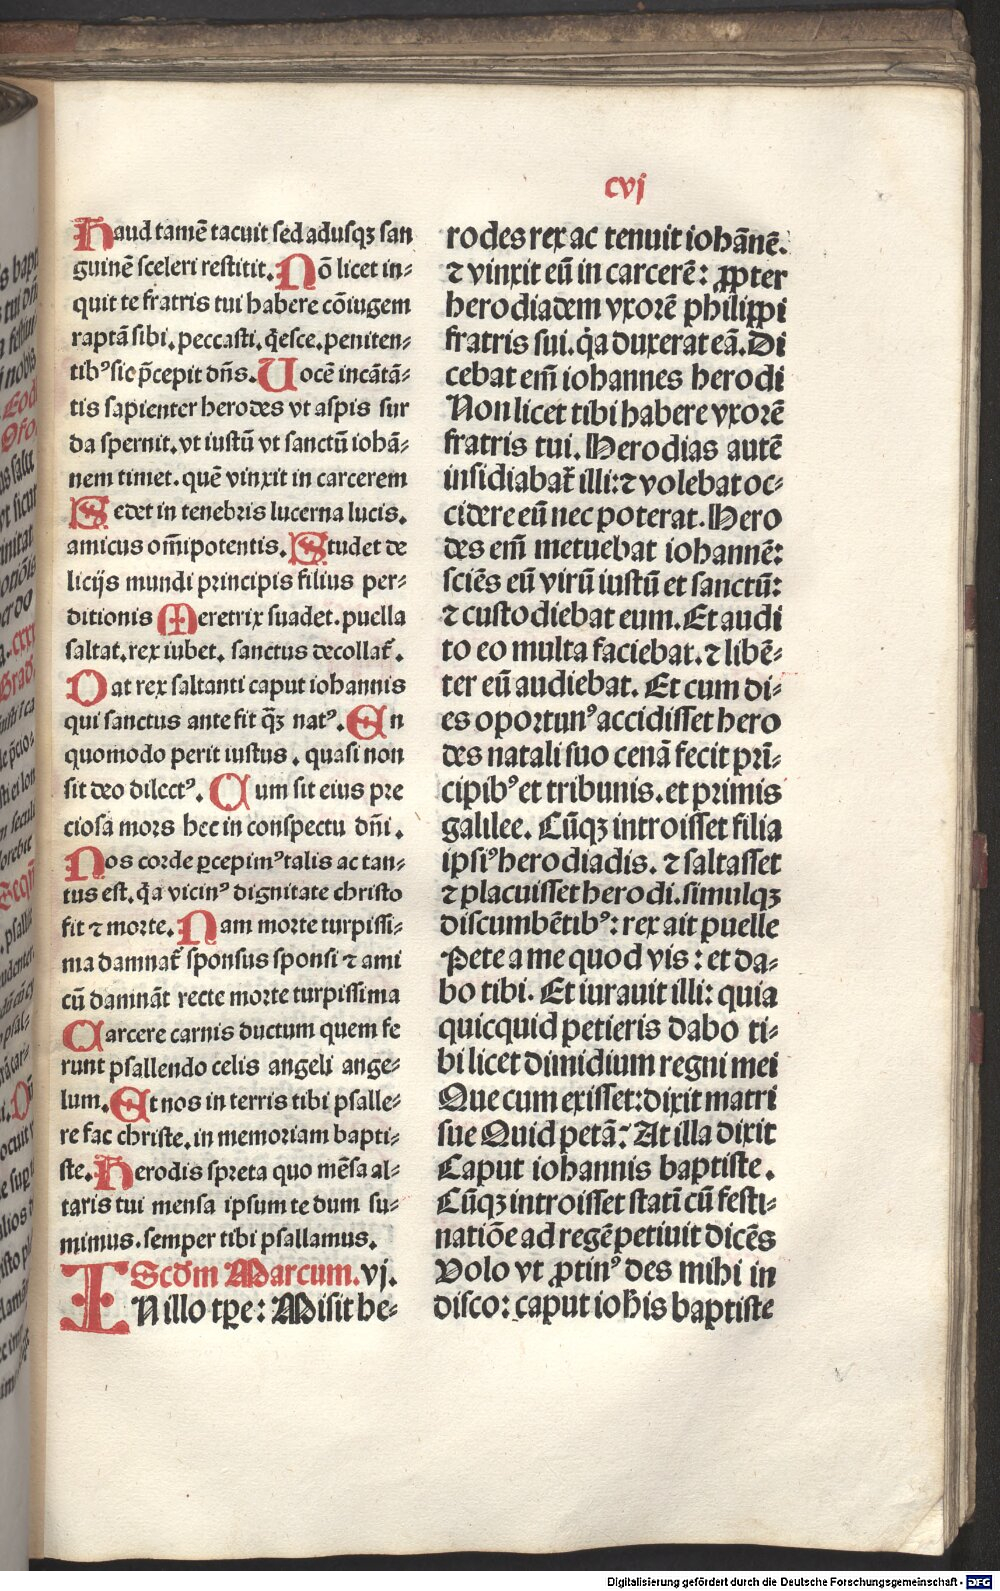 cvj
Haud tamē tacuit sed adusqꝫ san
guinē sceleri restitit. Nō licet in⸗
quit te fratris tui habere cōiugem
raptā sibi. peccasti. q̄esce. peniten⸗
tibꝰ sic p̄cepit dn̄s. Uocē incātā⸗
tis sapienter herodes vt aspis sur
da spernit. vt iustū vt sanctū iohā⸗
nem timet. quē vinxit in carcerem
Sedet in tenebris lucerna lucis.
amicus om̄ipotentis. Studet de
licijs mundi principis filius per⸗
ditionis Meretrix suadet. puella
saltat. rex iubet. sanctus decollat᷑.
Dat rex saltanti caput iohannis
qui sanctus ante fit q̄ꝫ natꝰ. En
quomodo perit iustus. quasi non
sit deo dilectꝰ. Cum sit eius pre
ciosa mors hec in conspectu dn̄i.
Nos corde ꝑcepimꝰ talis ac tan⸗
tus est. q̄a vicinꝰ dignitate christo
fit ⁊ morte. Nam morte turpissi⸗
ma damnat᷑ sponsus sponsi ⁊ ami
cū damnāt recte morte turpissima
Carcere carnis ductum quem fe
runt psallendo celis angeli ange⸗
lum. Et nos in terris tibi psalle⸗
re fac christe. in memoriam bapti⸗
ste. Herodis spreta quo mēsa al⸗
taris tui mensa ipsum te dum su⸗
mimus. semper tibi psallamus.
Scdm Marcum. vj.
IN illo tꝑe: Misit he⸗
rodes rex ac tenuit iohānē.
⁊ vinxit eū in carcerē: ꝓpter
herodiadem vxorē philippi
fratris sui. q̄a duxerat eā. Di
cebat em̄ iohannes herodi
Non licet tibi habere vxorē
fratris tui. Herodias autē
insidiabat᷑ illi: ⁊ volebat oc⸗
cidere eū nec poterat. Hero
des em̄ metuebat iohannē:
sciēs eū virū iustū et sanctū:
⁊ custodiebat eum. Et audi
to eo multa faciebat. ⁊ libē⸗
ter eū audiebat. Et cum di⸗
es oportunꝰ accidisset hero
des natali suo cenā fecit prī⸗
cipibꝰ et tribunis. et primis
galilee. Cūqꝫ introisset filia
ipsiꝰ herodiadis. ⁊ saltasset
⁊ placuisset herodi. simulqꝫ
discumbētibꝰ: rex ait puelle
Pete a me quod vis: et da⸗
bo tibi. Et iurauit illi: quia
quicquid petieris dabo ti⸗
bi licet dimidium regni mei
Que cum exisset: dixit matri
sue Quid petā: At illa dixit
Caput iohannis baptiste.
Cūqꝫ introisset statū cū festi⸗
natiōe ad regē petiuit dicēs
Volo vt ꝓtinꝰ des mihi in
disco: caput ioh̄is baptiste
Digitalisierung gefördert durch die Deutsche Forschungsgemeinschaft - DFG